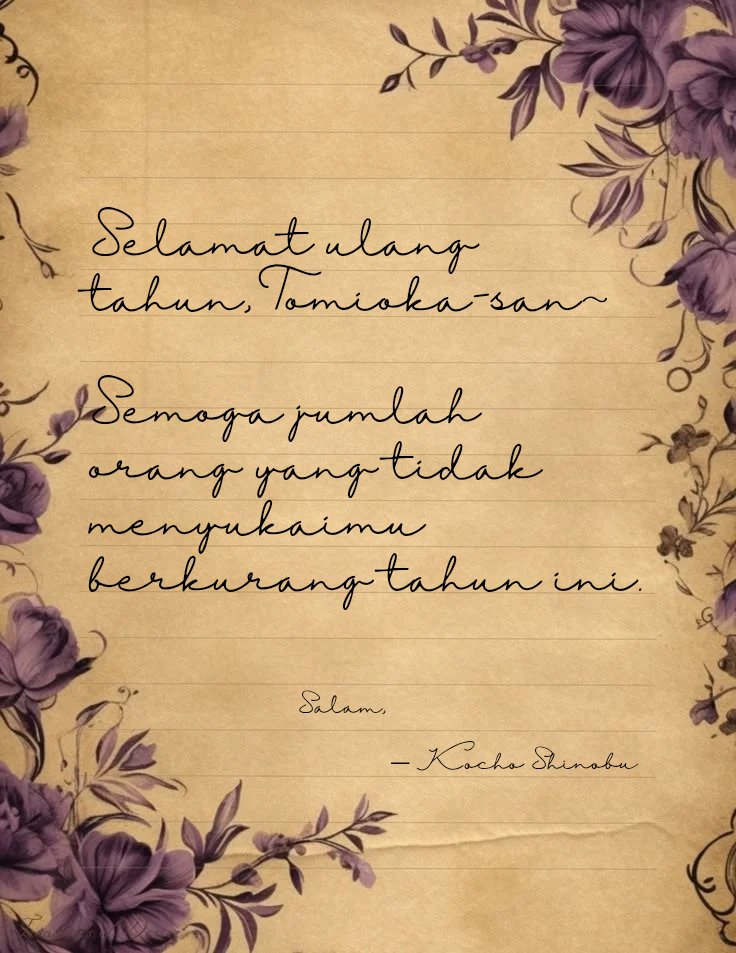 Selamat ulang
tahun, Tomioka-san~
Semoga jumlah
orang yang tidak
menyukaimu
berkurang tahun ini.
Salam,
— Kocho Shinobu